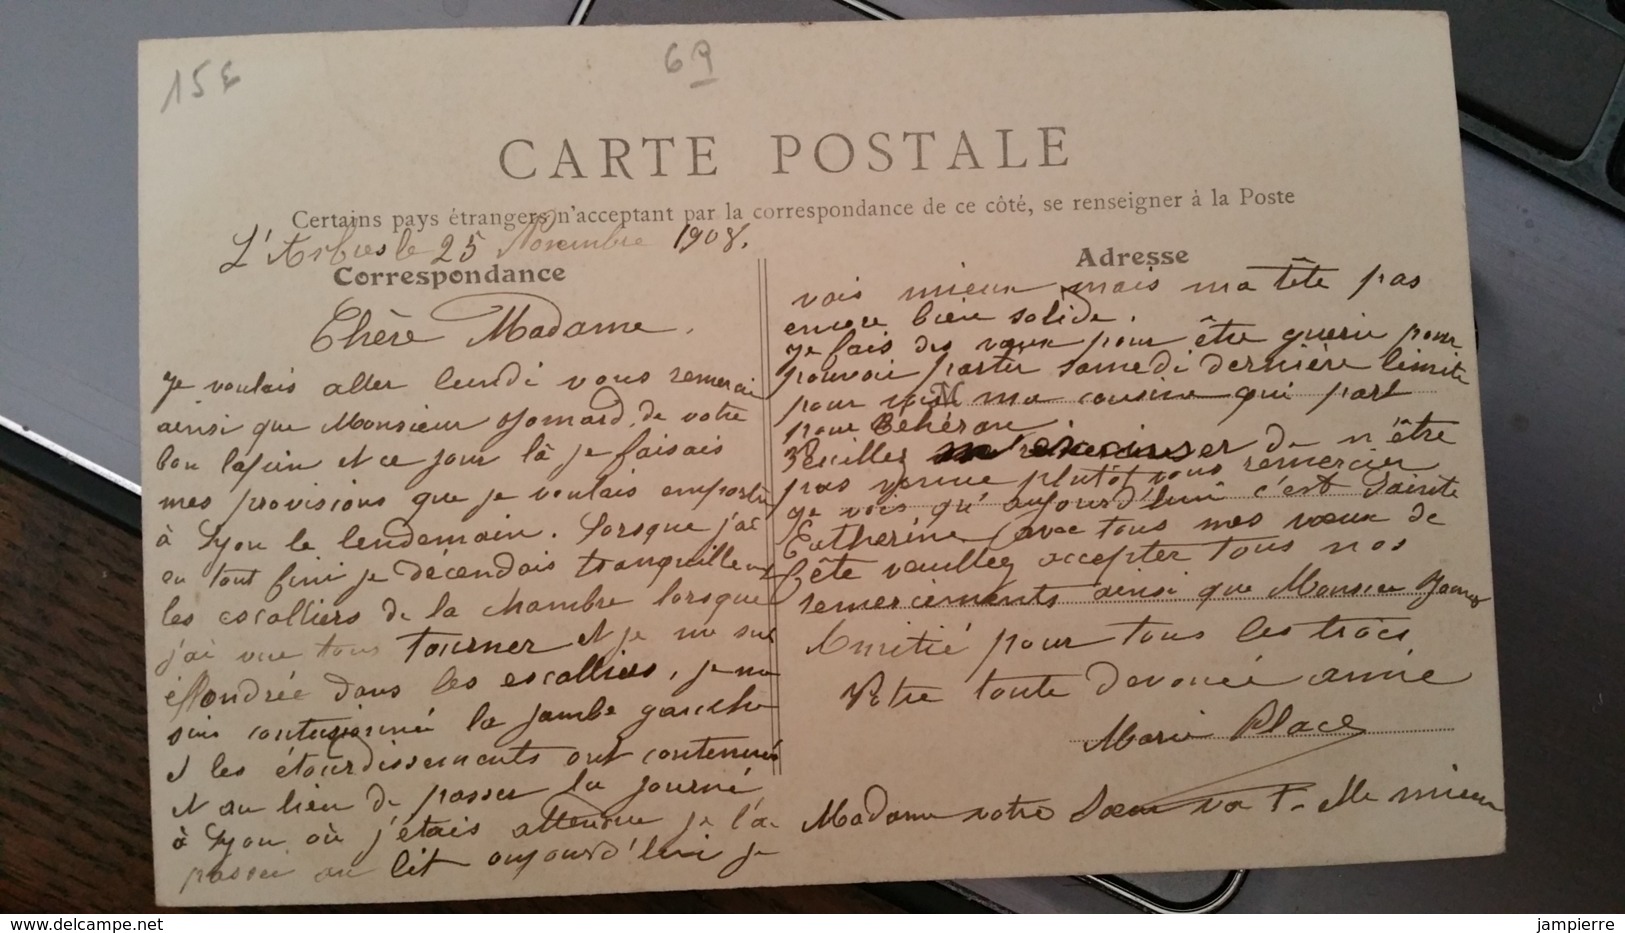 15€
69
CARTE POSTALE
Certains pays étrangers n'acceptant par la correspondance de ce côté, se renseigner à la Poste
L'Arbresle 25 Novembre 1908.
Correspondance
Chère Madame,
Je voulais aller lundi vous remercie
ainsi que Monsieur Jomard, de votre
bon lapin et ce jour là je faisais
mes provisions que je voulais emporter
à Lyon le lendemain. Lorsque j'ai
eu tout fini je décendais tranquillement
les escalliers de la chambre lorsque
j'ai vue tous tourner et je me suis
éffondrée dans les escalliers, je me
suis contusionné la jambe gauche
et les étourdissements ont continués
et au lieu de passer la journé
à Lyon où j'étais attendue je l'ai
passer au lit aujourd'hui je
Adresse
vais mieux mais ma tête pas
encore bien solide.
Je fais des vœux pour être guerie pour
pouvoir partir samedi dernière limite
pour voir ma cousine qui part
pour Téhéran
Veuillez m'excuser de n'être
pas venue plutôt vous remercier
je vois qu'aujourd'hui c'est Sainte
Catherine, avec tous mes vœux de
fête veuillez accepter tous nos
remerciments ainsi que Monsieur Jomard
Amitié pour tous les trois
Votre toute devouée amie
Marie Place
Madame votre Sœur va t-elle mieux
delcampe.net
jampierre